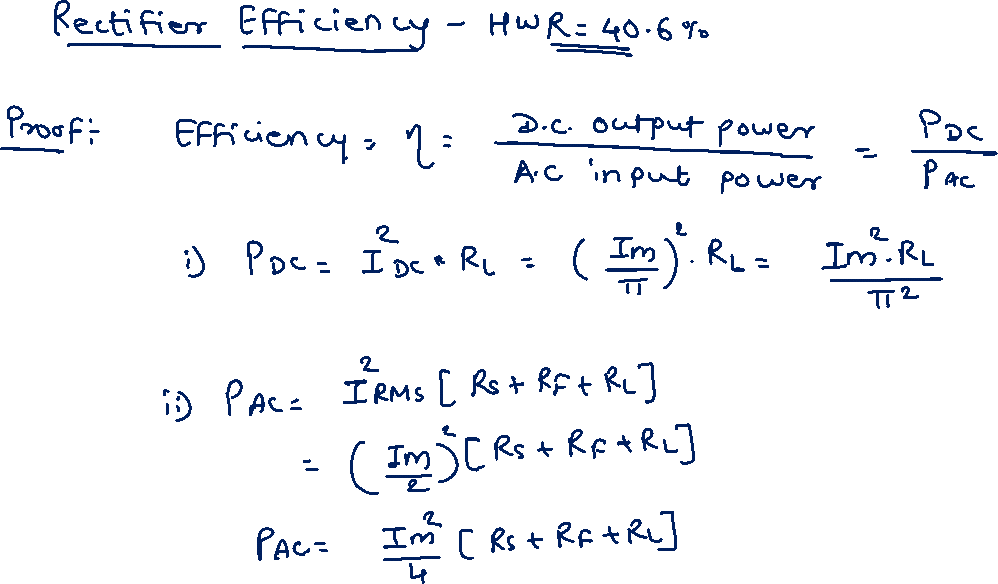 Rectifier Efficiency - HWR = 40.6 %
Proof:- Efficiency = η = D.C. output power / A.C input power = PDC / PAC
i) PDC = I²DC * RL = (Im/π)² . RL = Im². RL / π²
ii) PAC = I²RMS [ Rs + RF + RL ]
= (Im/2)² [ Rs + RF + RL ]
PAC = Im²/4 [ Rs + RF + RL ]